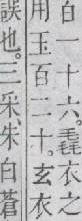 白一十六。毳衣之
用玉百二十。玄衣
誤也。三采、朱白蒼